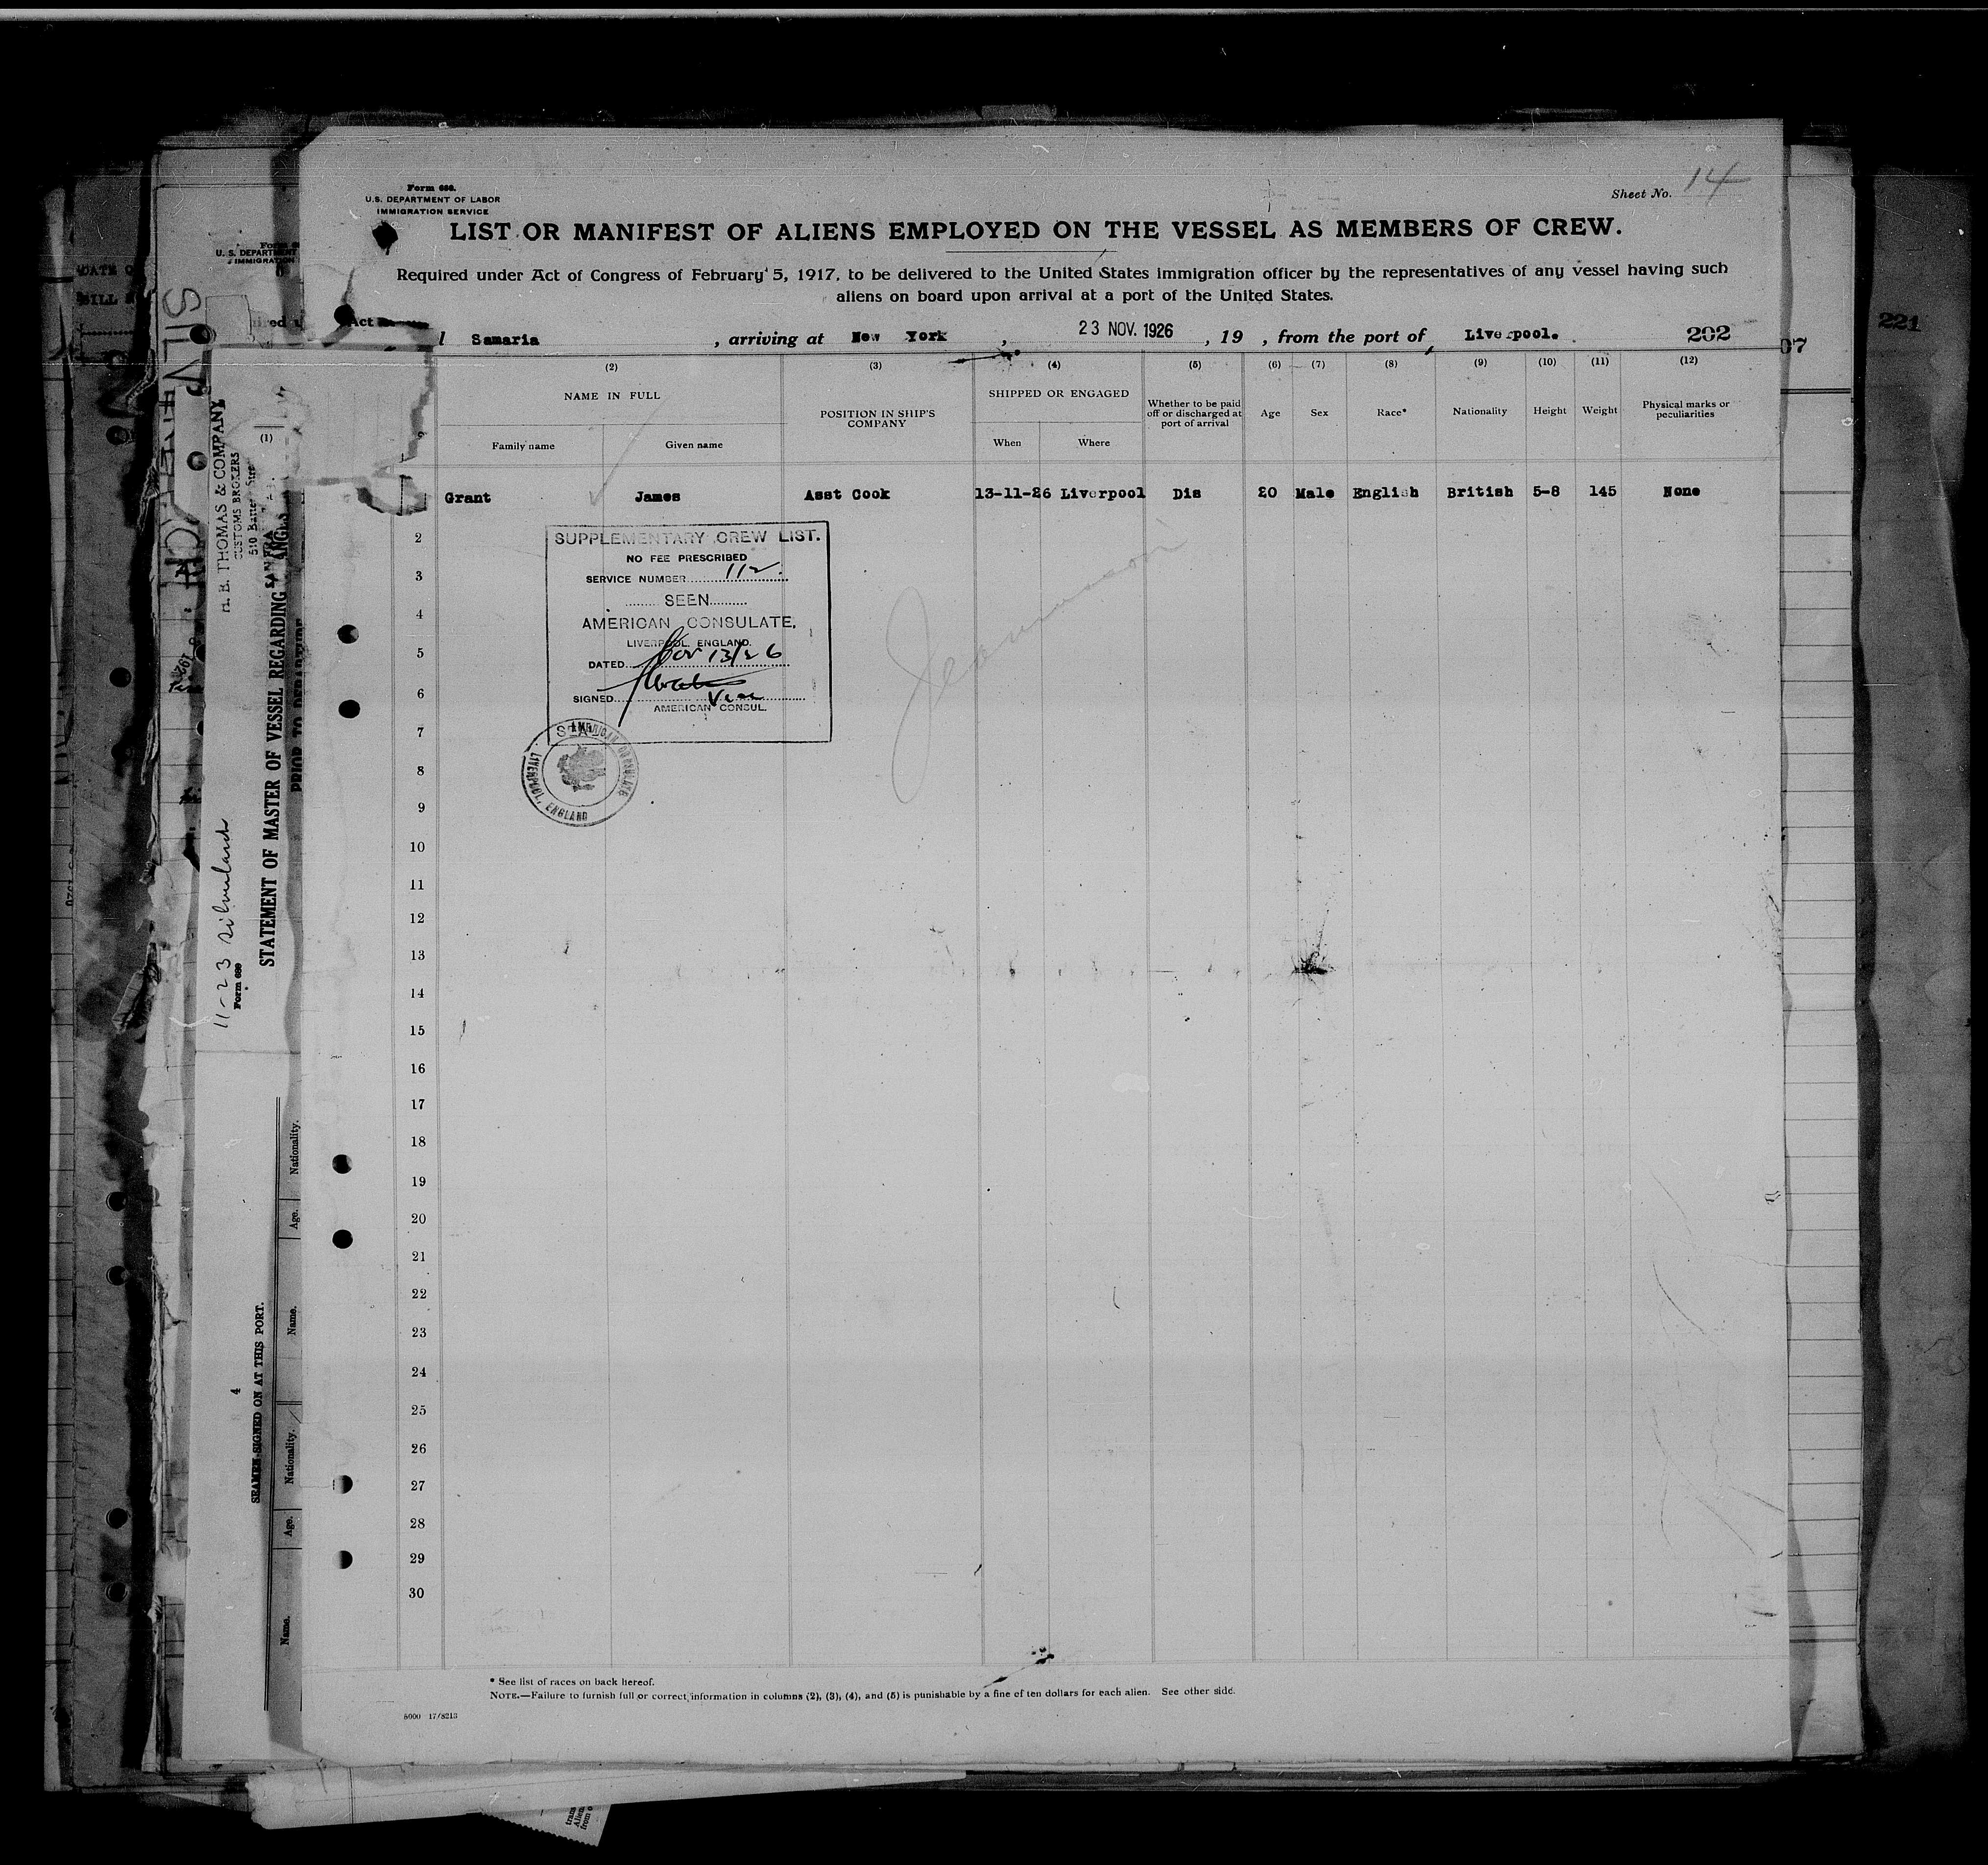 Form 689.
U.S. DEPARTMENT OF LABOR
IMMIGRATION SERVICE
Sheet No. 14
LIST OR MANIFEST OF ALIENS EMPLOYED ON THE VESSEL AS MEMBERS OF CREW.
Required under Act of Congress of February 5, 1917, to be delivered to the United States immigration officer by the representatives of any vessel having such
aliens on board upon arrival at a port of the United States.
Samaria, arriving at New York, 23 NOV. 1926, 19 , from the port of Liverpool. 202
(1) (2) (3) (4) (5) (6) (7) (8) (9) (10) (11) (12)
NAME IN FULL
Family name Given name
POSITION IN SHIP'S COMPANY
SHIPPED OR ENGAGED
When Where
Whether to be paid off or discharged at port of arrival
Age Sex Race* Nationality Height Weight
Physical marks or peculiarities
Grant James Asst Cook 13-11-26 Liverpool Dis 20 Male English British 5-8 145 None
SUPPLEMENTARY CREW LIST.
NO FEE PRESCRIBED
SERVICE NUMBER 112.
SEEN
AMERICAN CONSULATE,
LIVERPOOL, ENGLAND.
DATED Nov 13/26
SIGNED Vice
AMERICAN CONSUL.
SEAL
AMERICAN CONSULATE
LIVERPOOL, ENGLAND
2
3
4
5
6
7
8
9
10
11
12
13
14
15
16
17
18
19
20
21
22
23
24
25
26
27
28
29
30
* See list of races on back hereof.
NOTE.—Failure to furnish full or correct information in columns (2), (3), (4), and (5) is punishable by a fine of ten dollars for each alien. See other side.
5000 17/8213
H. B. THOMAS & COMPANY
CUSTOMS BROKERS
510
11-23 Silverlarch
Form 689
STATEMENT OF MASTER OF VESSEL REGARDING
PRIOR TO DEPARTURE
4
SEAMEN SIGNED ON AT THIS PORT.
Name. Age. Nationality. Name. Age. Nationality.
U. S. DEPARTMENT
IMMIGRATION
07
221